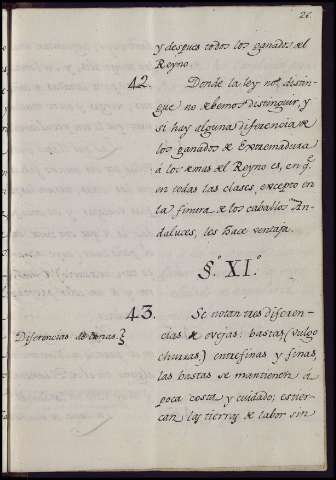 26.
y despues todos los ganados del
Reyno.
42. Donde la ley no distin-
gue no debemos distinguir, y
si hay alguna diferencia de
los ganados de Extremadura
a los demas del Reyno es, en q.e
en todas las clases, excepto en
la finura de los caballos An-
daluces, les hace ventaja.
§.º XI.º
43. Se notan tres diferen-
Diferencias de lanas.
cias de ovejas: bastas (vulgo
churras,) entrefinas y finas,
las bastas se mantienen á
poca costa y cuidado; estier-
can las tierras de labor sin